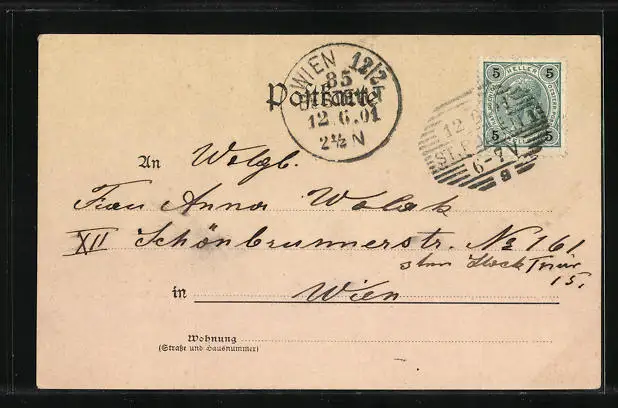 WIEN 12/2
85
BESTELLT
12.6.01
2½N
Postkarte
5 HELLER 5
5 5
12.6.01
ST.P
6-7N
B
An Wolgb.
Frau Anna Wolak
XII Schönbrunnerstr. № 161
Stock Thür
15.
in Wien
Wohnung
(Straße und Hausnummer)